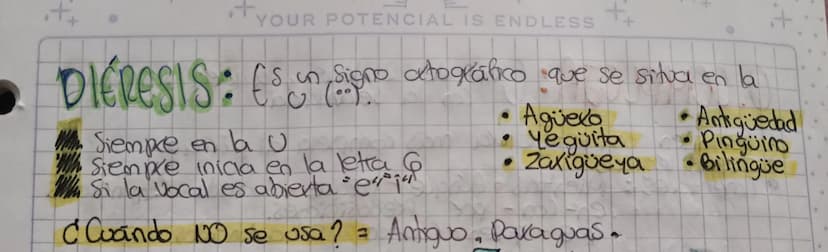 YOUR POTENCIAL IS ENDLESS
DIÉRESIS: Es un signo ortográfico que se situa en la
U (¨).
Siempre en la U
Siempre inicia en la letra G
Si la vocal es abierta "e" "i"
• Agüero
• Yegüita
• Zarigüeya
• Antigüedad
• Pingüino
• Bilingüe
¿Cuándo NO se usa? = Antiguo, Paraguas.